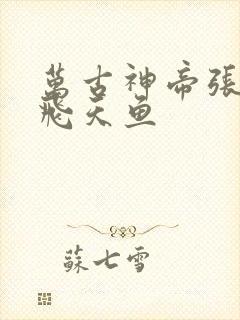 萬古神帝張
飛天魚
蘇七雪